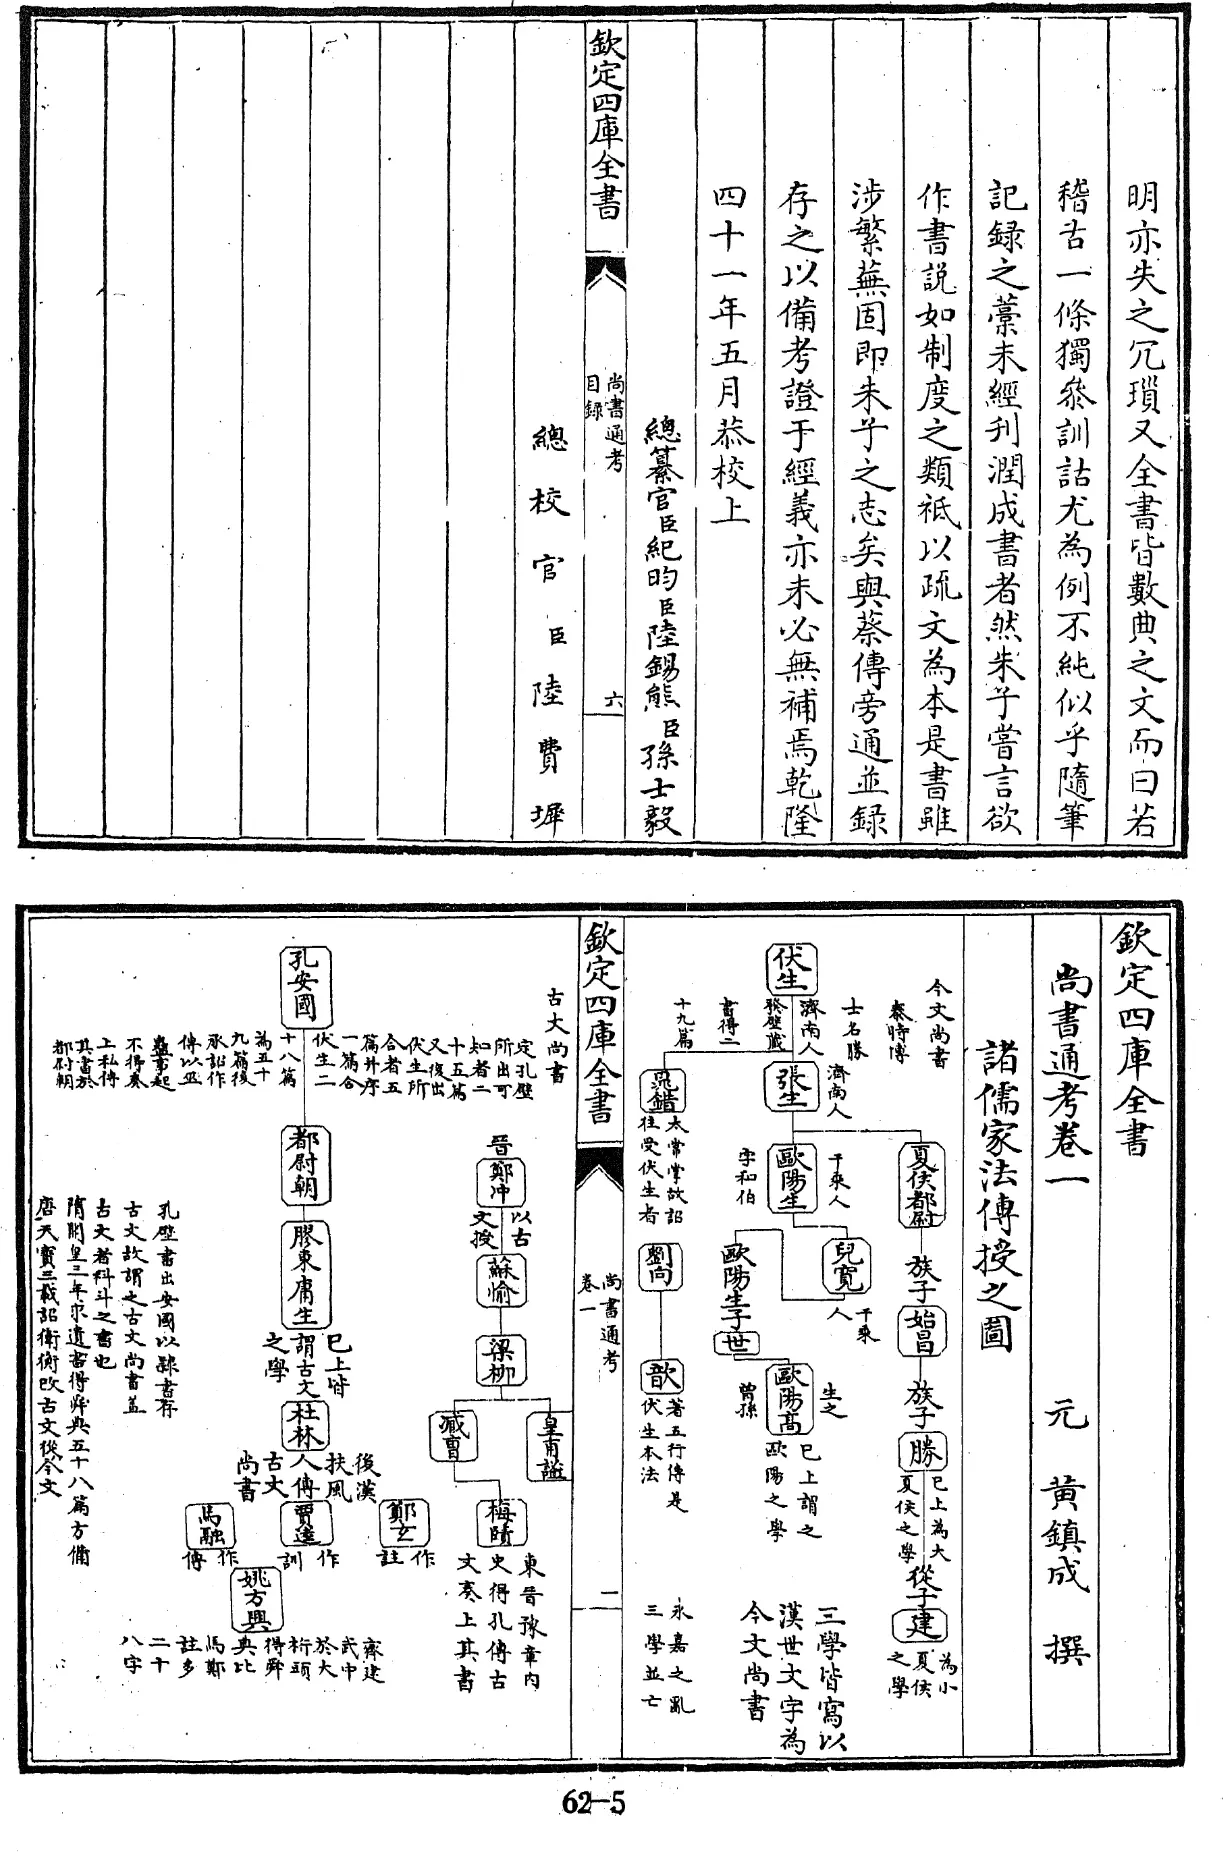 明亦失之冗瑣又全書皆數典之文而曰若
稽古一條獨參訓詁尤為例不純似乎隨筆
記録之藁未經刋潤成書者然朱子嘗言欲
作書說如制度之類祗以疏文為本是書雖
涉繁蕪固即朱子之志矣與蔡傳旁通並録
存之以備考證于經義亦未必無補焉乾隆
四十一年五月恭校上
總纂官臣紀昀臣陸錫熊臣孫士毅
欽定四庫全書
尚書通考
目録
六
總校官臣陸費墀
欽定四庫全書
尚書通考卷一
元 黄鎮成 撰
諸儒家法傳授之圖
今文尚書
伏生
濟南人
士名勝
秦時博
發壁藏
書得二
十九篇
張生
濟南人
鼂錯
太常掌故詔
往受伏生者
夏侯都尉
族子
始昌
族子
勝
已上為大
夏侯之學
從子
建
為小
夏侯
之學
歐陽生
千乘人
字和伯
兒寛
千乘
人
歐陽生子
世
歐陽髙
生之
曾孫
已上謂之
歐陽之學
劉向
歆
著五行傳是
伏生本法
三學皆寫以
漢世文字為
今文尚書
永嘉之亂
三學並亡
欽定四庫全書
尚書通考
卷一
一
古文尚書
孔安國
定孔壁
所出可
知者二
十五篇
又復出
伏生所
合者五
篇并序
一篇合
伏生二
十八篇
為五十
九篇後
承詔作
傳以巫
蠱事起
不得奏
上私傳
其書於
都尉朝
都尉朝
膠東庸生
已上皆
謂古文
之學
杜林
後漢
扶風
人傳
古文
尚書
賈逵
作
訓
馬融
作
傳
鄭玄
作
註
姚方興
齊建
武中
於大
桁頭
得舜
典比
馬鄭
註多
二十
八字
晉
鄭冲
以古
文授
蘇愉
梁柳
皇甫謐
臧曹
梅賾
東晉豫章内
史得孔傳古
文奏上其書
孔壁書出安國以隸書存
古文故謂之古文尚書蓋
古文者科斗之書也
隋開皇三年求遺書得舜典五十八篇方備
唐天寶三載詔衛衡改古文從今文
62-5